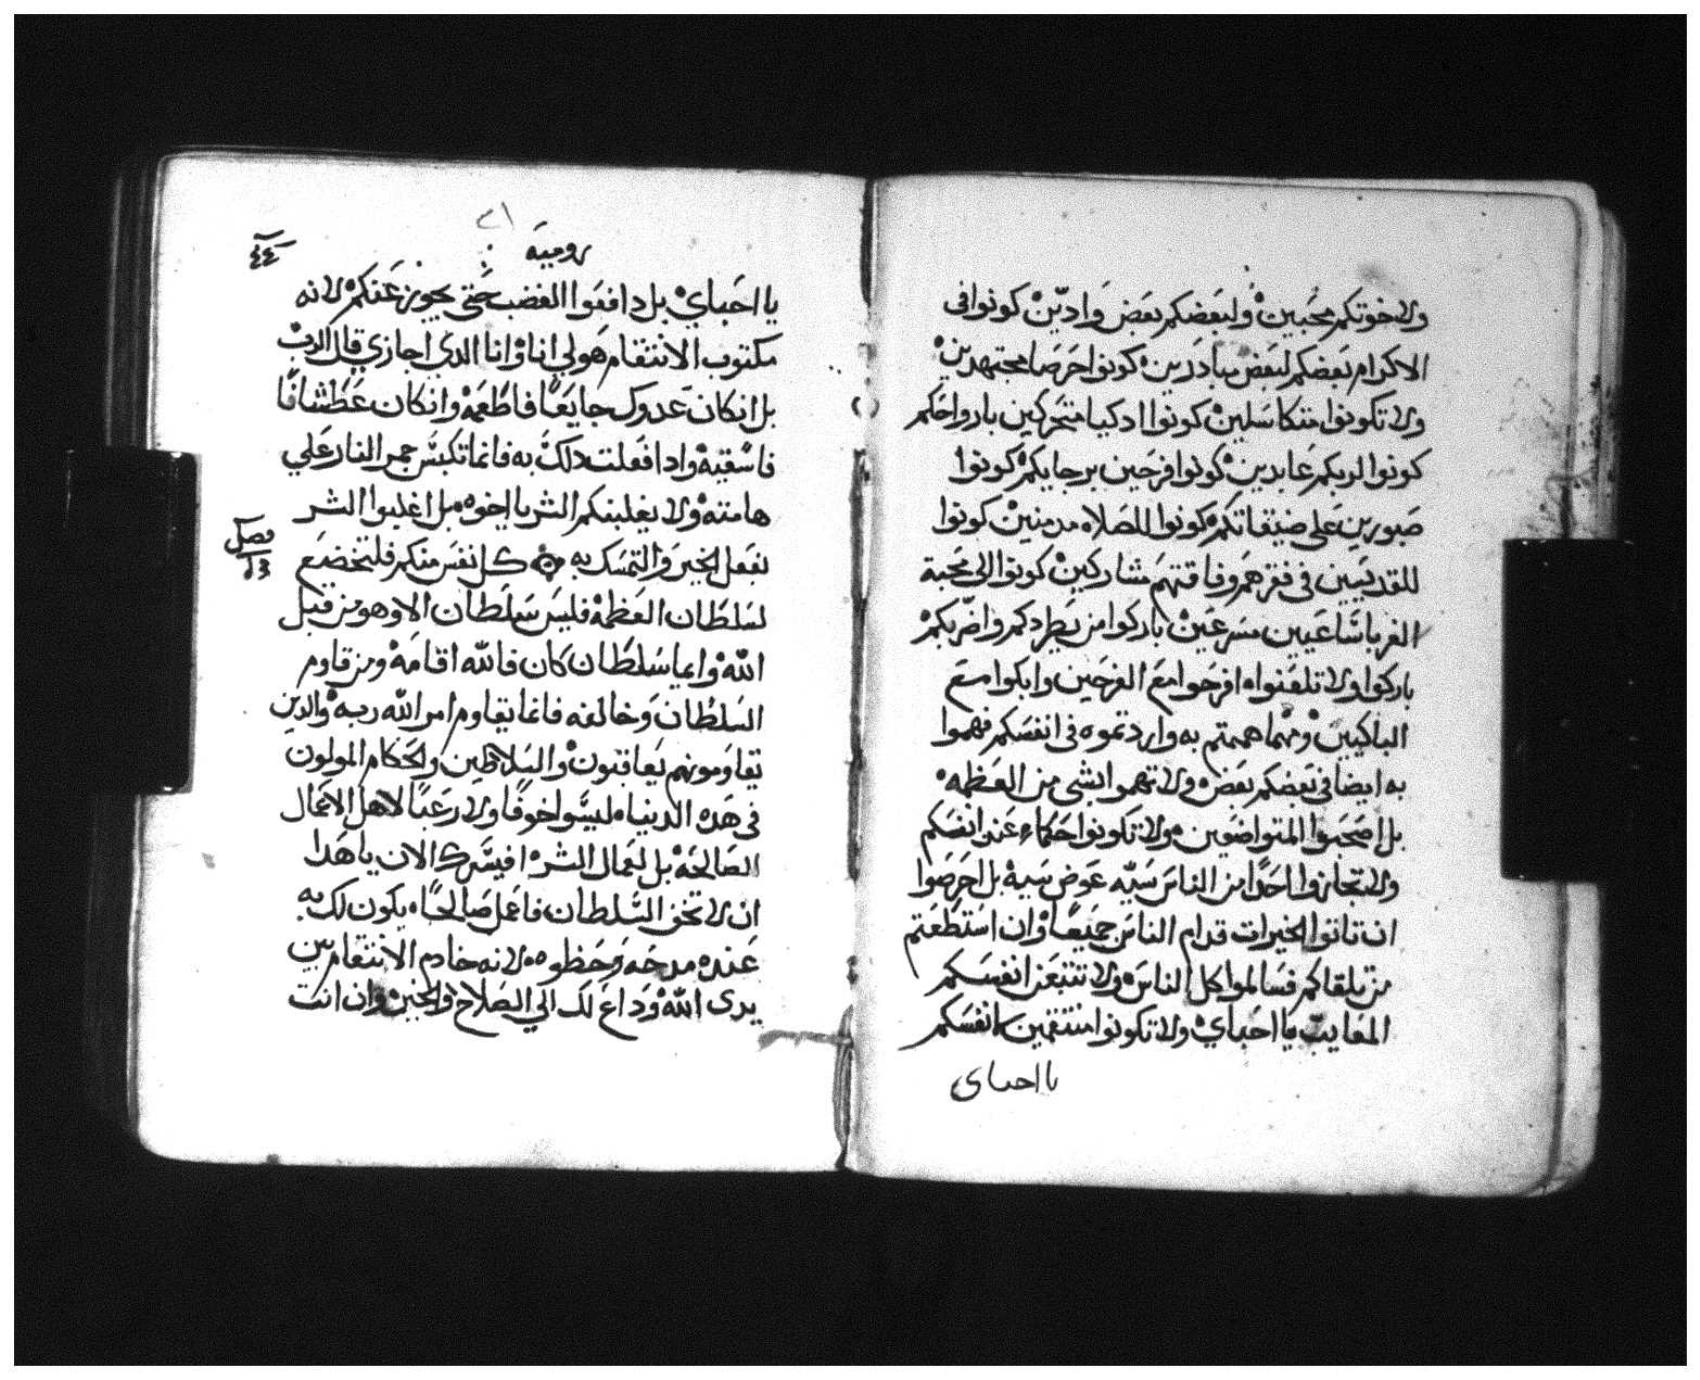 ولاخوتكم محبين ولبعضكم بعض وادين كونوا فى
الاكرام بعضكم لبعض مبادرين كونوا حرصا مجتهدين
ولا تكونوا متكاسلين كونوا ادكيا متحركين بارواحكم
كونوا لربكم عابدين كونوا فرحين برجايكم كونوا
صبورين على ضيقاتكم كونوا للصلاه مدمنين كونوا
للقديسين فى فقرهم وفاقتهم مشاركين كونوا الى محبة
الغربا ساعيين مسرعين باركوا من يطردكم واضربكم
باركوا ولا تلعنوا افرحوا مع الفرحين وابكوا مع
الباكيين ومهما هممتم به واردتموه فى انفسكم فهموا
به ايضا فى بعضكم بعض ولا تهموا بشى من العظمه
بل اصحبوا المتواضعين ولا تكونوا حكماء عند انفسكم
ولا تجازوا احدا من الناس سيه عوض سية بل احرصوا
ان تاتوا الخيرات قدام الناس جميعا وان استطعتم
من تلقاكم فسالموا كل الناس ولا تتبعن انفسكم
المعايب يا احباي ولا تكونوا منتقمين لانفسكم
يا احباى
رومية
٤٤
يا احباي بل دافعوا الغضب حتى يجوز عنكم لانه
مكتوب الانتقام هو لي انا وانا الدي اجازي قال الرب
بل ان كان عدوك جايعا فاطعمه وان كان عطشانا
فاسقيه وادا فعلت دلك به فانما تكبس جمر النار علي
هامته ولا يغلبنكم الشر يا اخوه بل اغلبوا الشر
بفعل الخير والتمسك به كل نفس منكم فلتخضع
فصل
١٣
لسلطان العظمه فليس سلطان الا وهو من قبل
الله وايما سلطان كان فالله اقامه ومن قاوم
السلطان وخالفه فانما يقاوم امر الله ربه والدين
يقاومونهم يعاقبون والسلاطين والحكام المولون
فى هده الدنيا ليسوا خوفا ولا رعبا لاهل الاعمال
الصالحة بل لعمال الشر افيسرك الان يا هدا
ان لا تخف السلطان فاعمل صالحا يكون لك به
عنده مدحه وحظوه لانه خادم الانتقام بين
يدى الله وداع لك الي الصلاح والخير وان انت